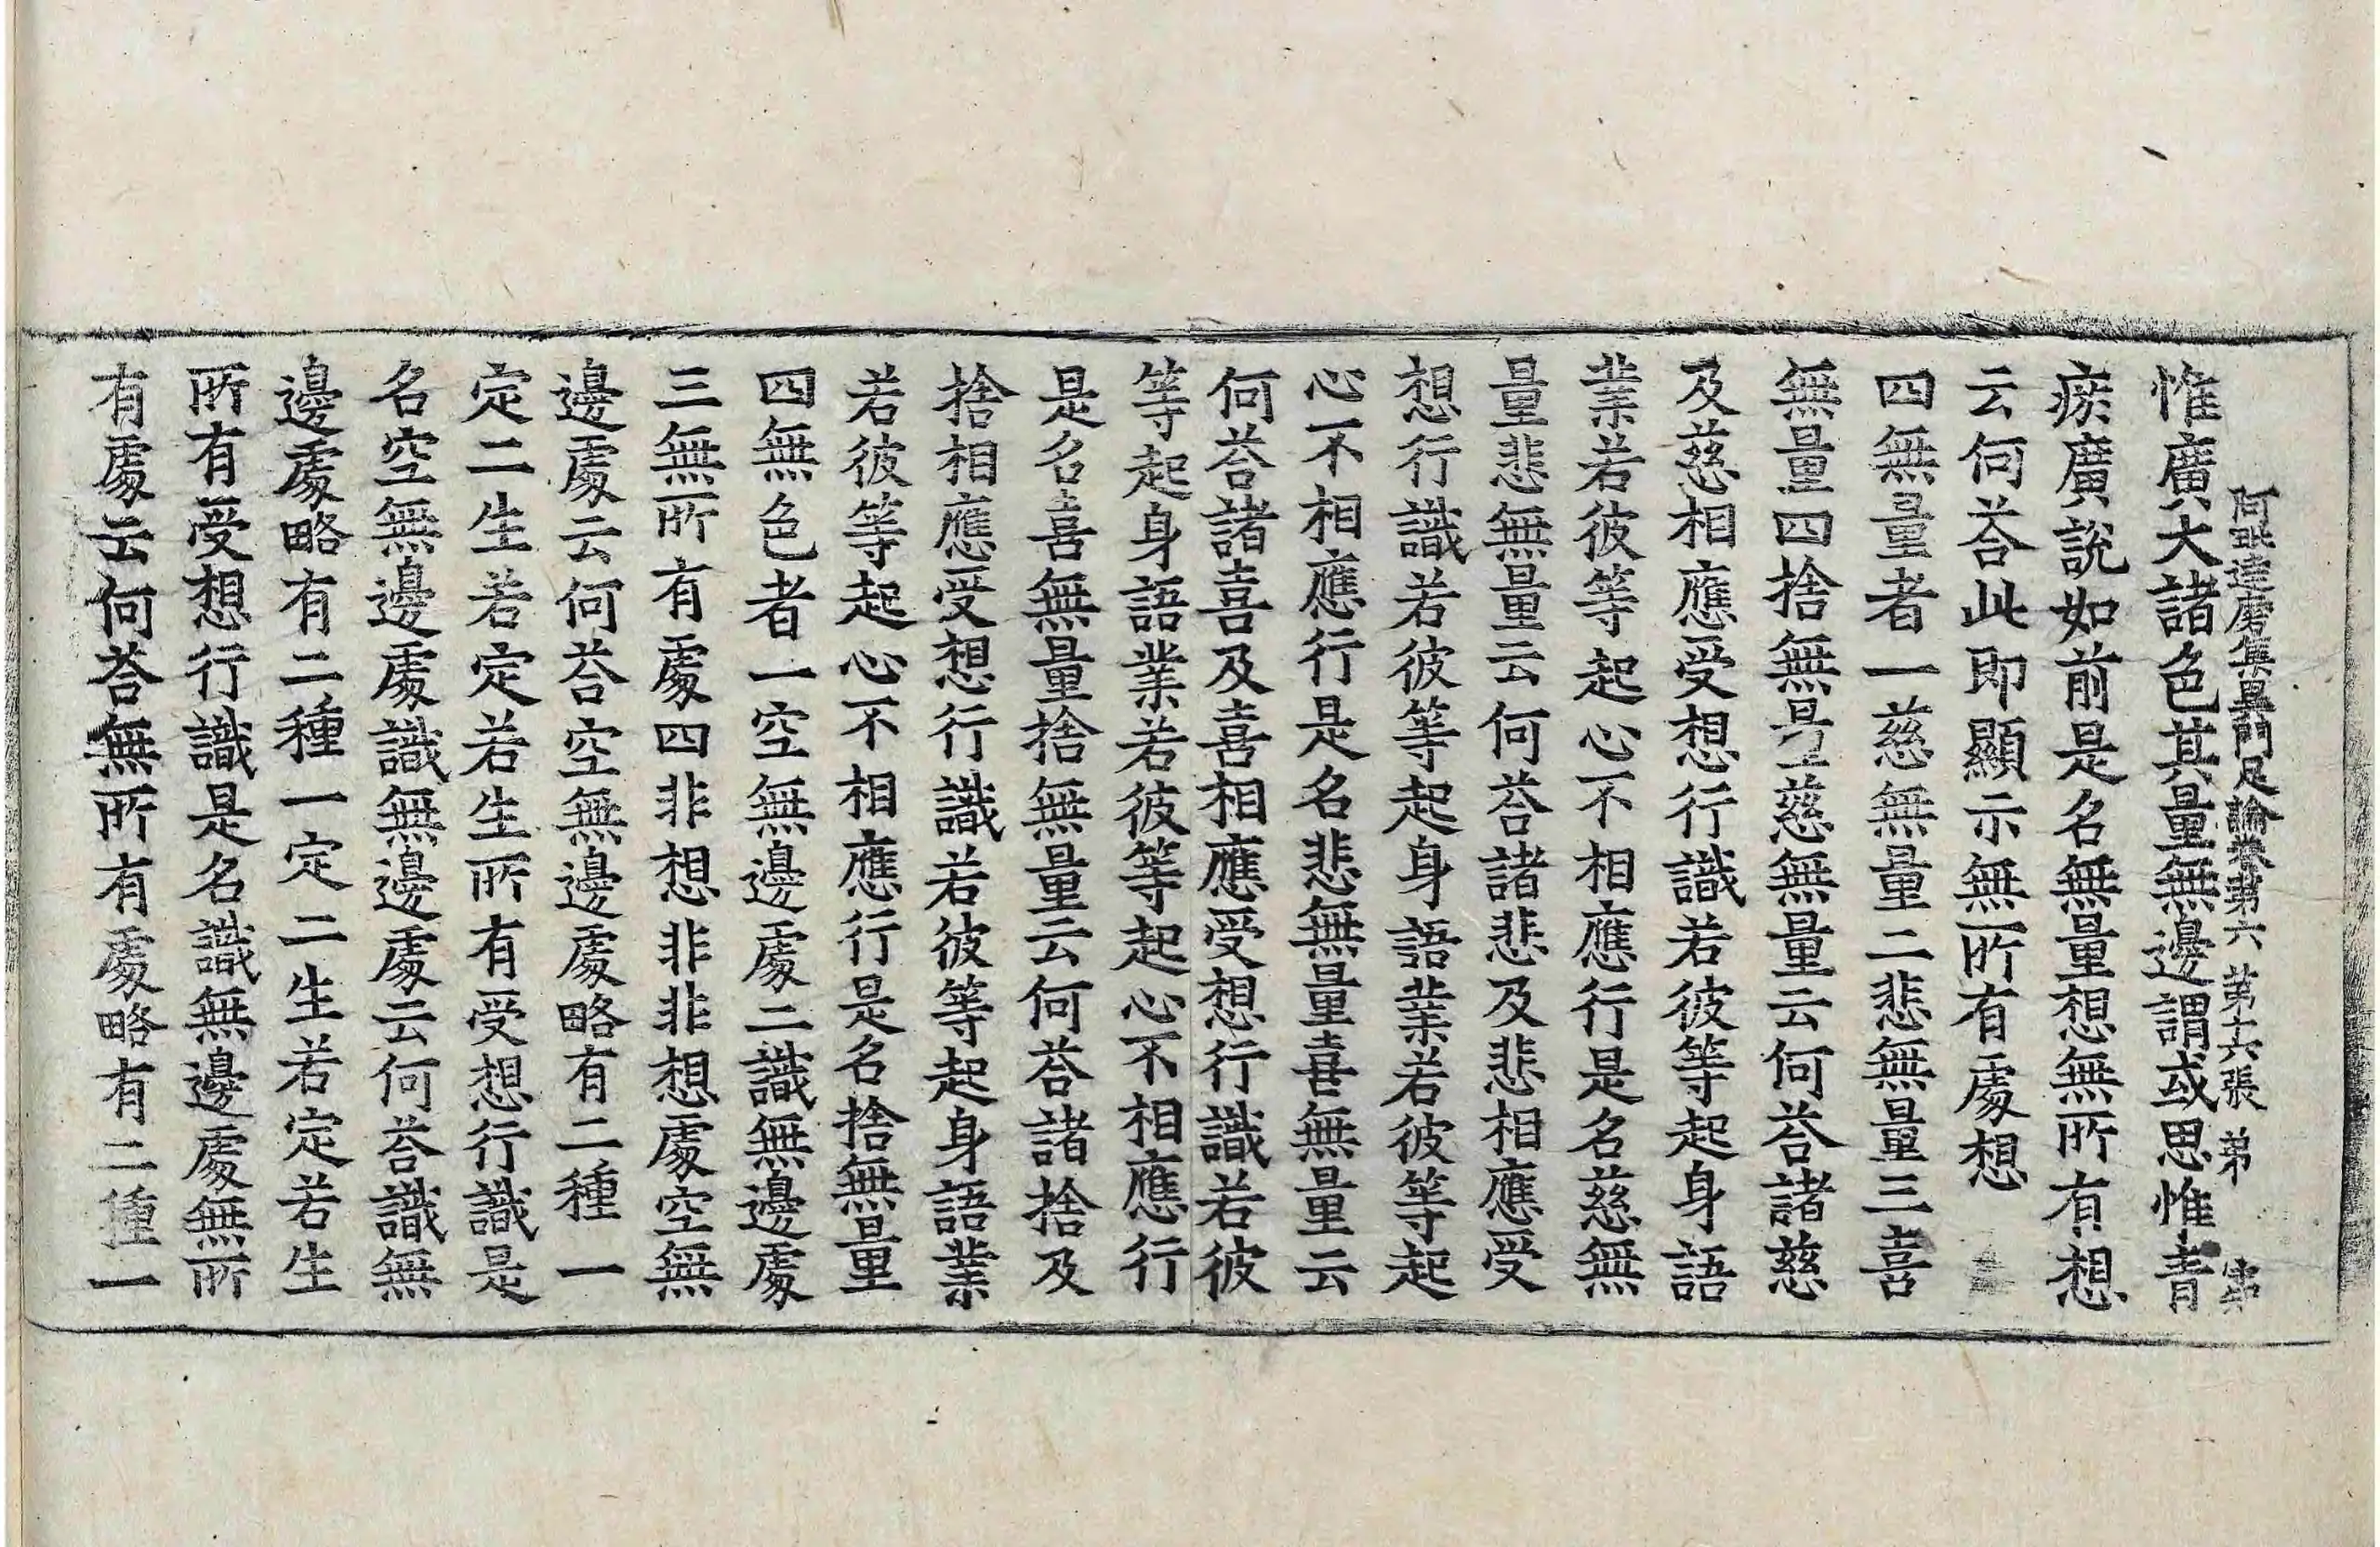 阿毗達磨集異門足論卷第六 第十六張 弟
惟廣大諸色其量無邊謂或思惟青
瘀廣說如前是名無量想無所有想
云何荅此即顯示無所有處想
四無量者一慈無量二悲無量三喜
無量四捨無量慈無量云何荅諸慈
及慈相應受想行識若彼等起身語
業若彼等起心不相應行是名慈無
量悲無量云何荅諸悲及悲相應受
想行識若彼等起身語業若彼等起
心不相應行是名悲無量喜無量云
何荅諸喜及喜相應受想行識若彼
等起身語業若彼等起心不相應行
是名喜無量捨無量云何荅諸捨及
捨相應受想行識若彼等起身語業
若彼等起心不相應行是名捨無量
四無色者一空無邊處二識無邊處
三無所有處四非想非非想處空無
邊處云何荅空無邊處略有二種一
定二生若定若生所有受想行識是
名空無邊處識無邊處云何荅識無
邊處略有二種一定二生若定若生
所有受想行識是名識無邊處無所
有處云何荅無所有處略有二種一